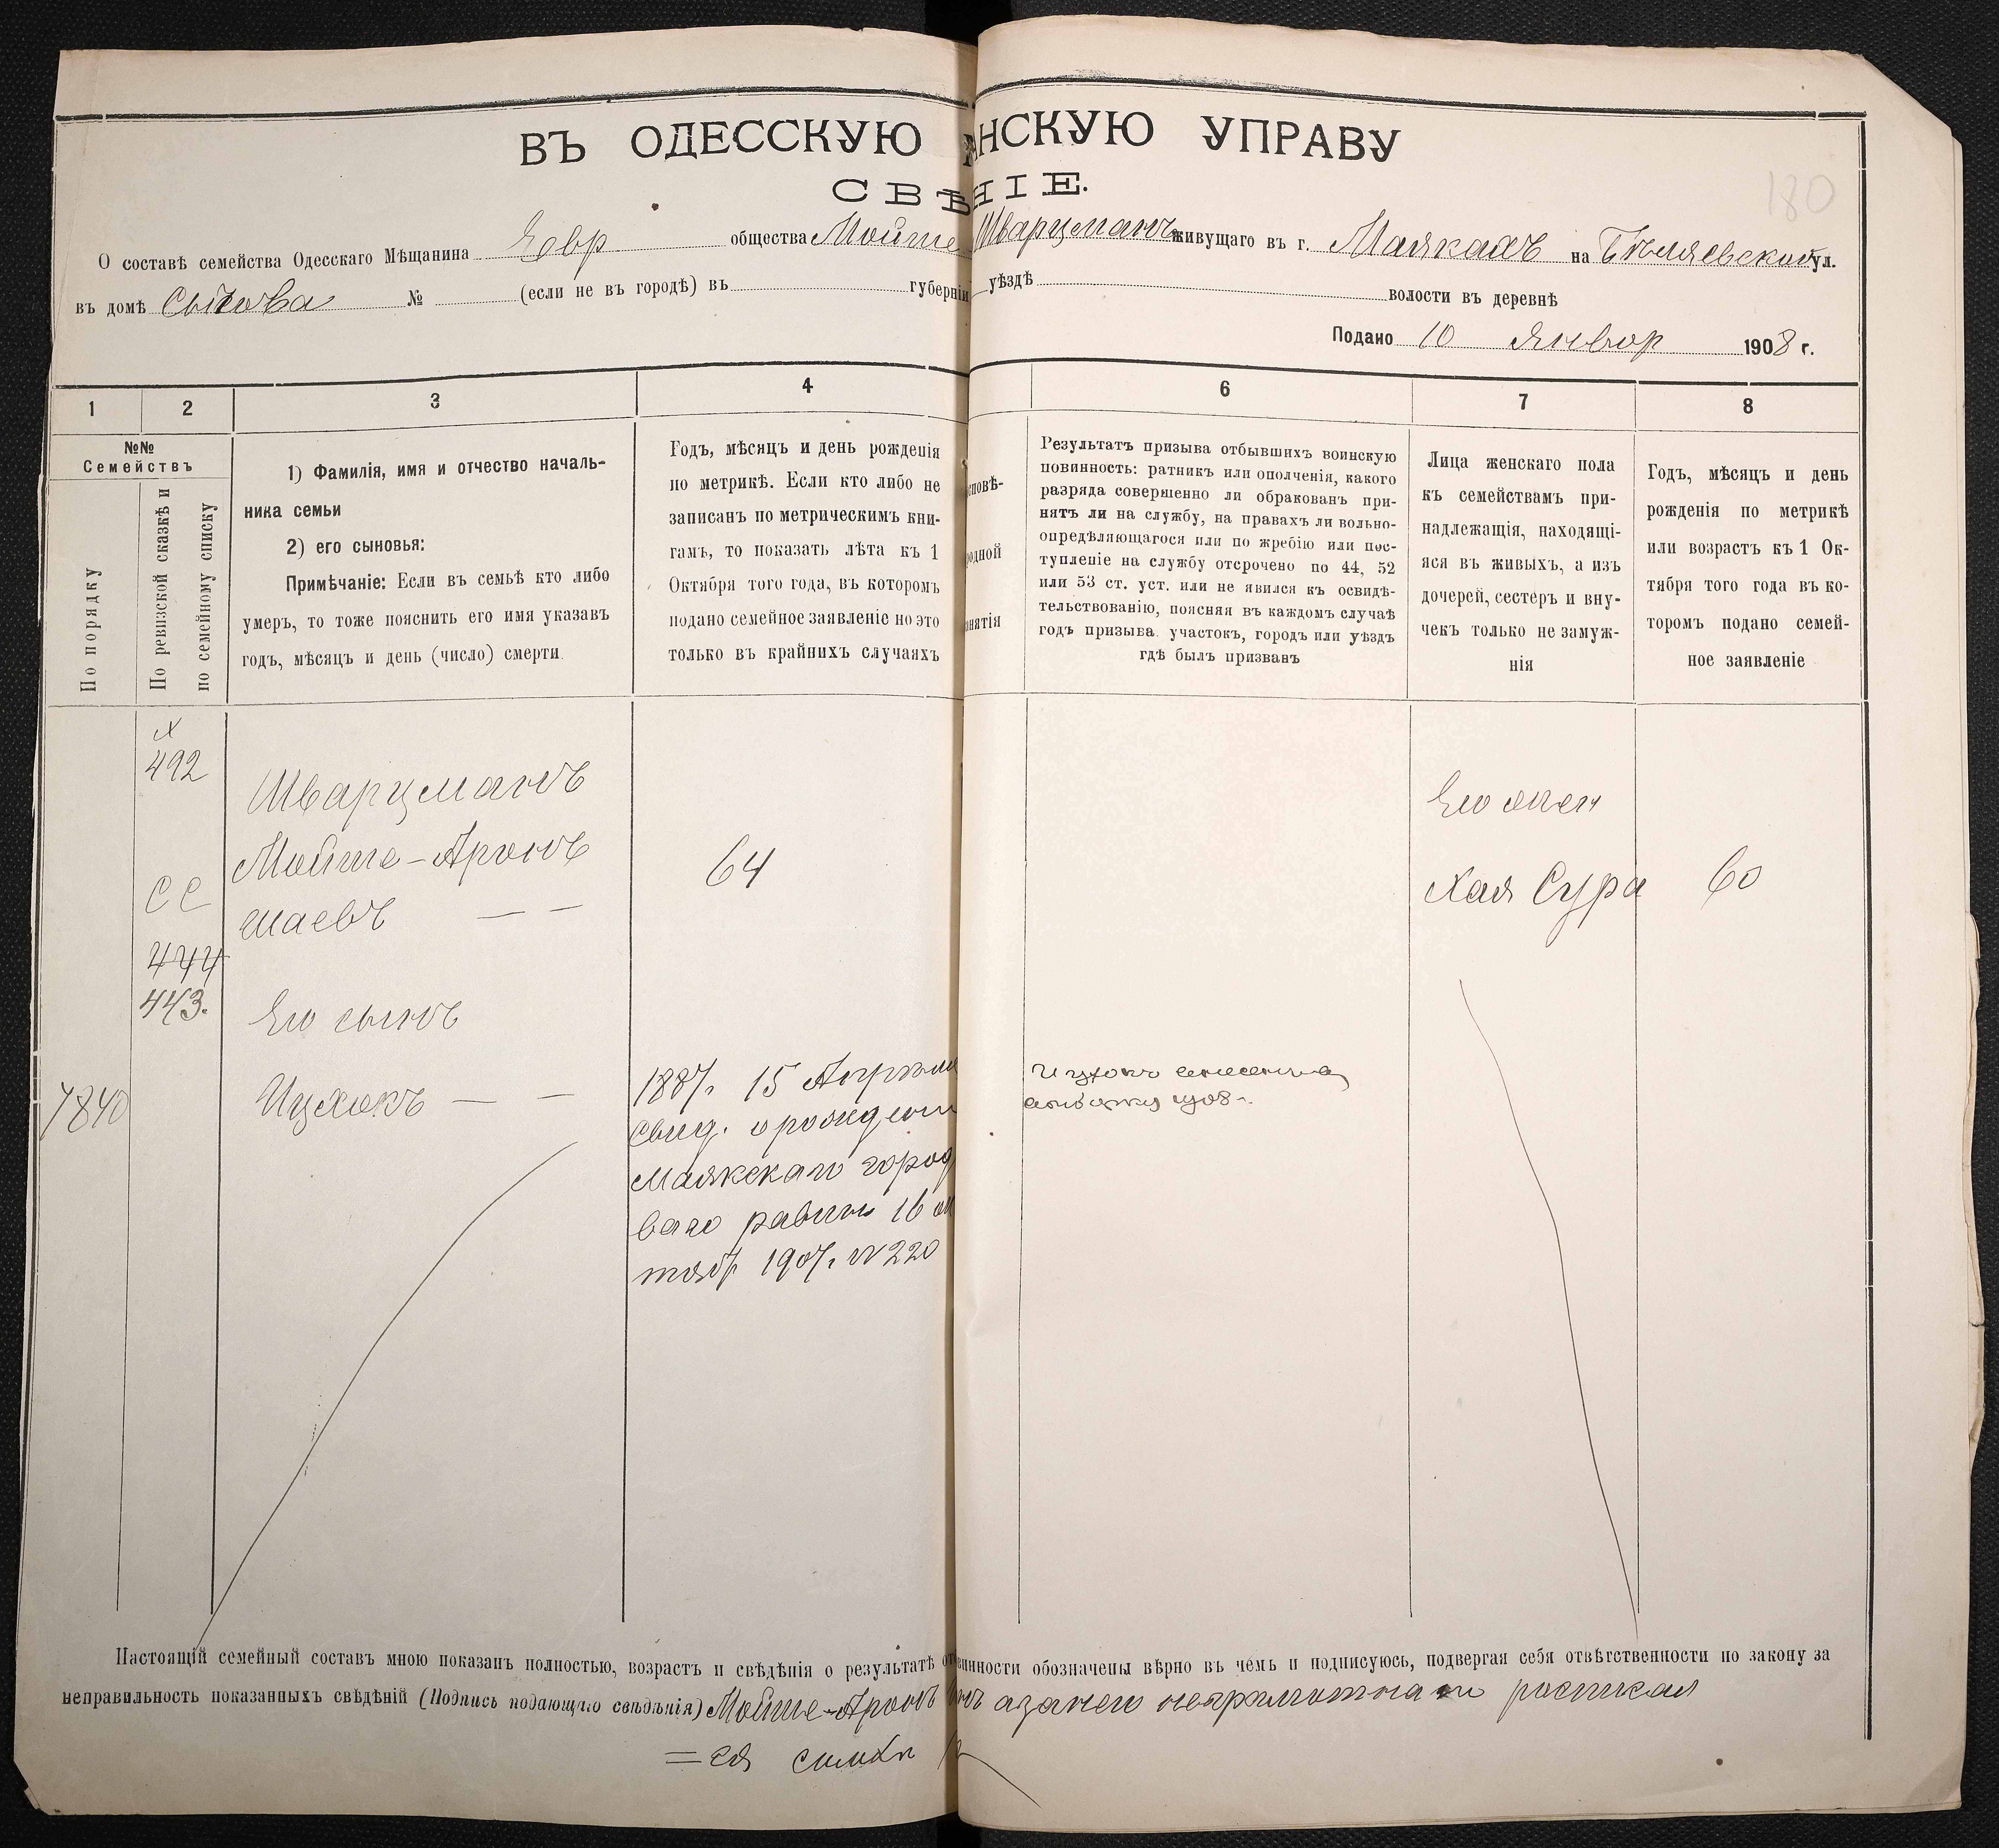 ВЪ ОДЕССКУЮ АНСКУЮ УПРАВУ
СВѢНІЕ.
180
О составѣ семейства Одесскаго Мѣщанина Евр общества Мойше Шварцманъ живущаго въ г. Маякахъ на Бѣляевской ул.
въ домѣ Сытова № (если не въ городѣ) въ губерніи уѣздѣ волости въ деревнѣ
Подано 10 Январ 1908 г.
1 2 3 4 6 7 8
№№
Семействъ
По порядку
По ревизской сказкѣ и
по семейному списку
1) Фамилія, имя и отчество началь-
ника семьи
2) его сыновья:
Примѣчаніе: Если въ семьѣ кто либо
умеръ, то тоже пояснить его имя указавъ
годъ, мѣсяцъ и день (число) смерти.
Годъ, мѣсяцъ и день рожденія
по метрикѣ. Если кто либо не
записанъ по метрическимъ кни-
гамъ, то показать лѣта къ 1
Октября того года, въ которомъ
подано семейное заявленіе но это
только въ крайнихъ случаяхъ
сповѣ-
родной
анятія
Результатъ призыва отбывшихъ воинскую
повинность: ратникъ или ополченія, какого
разряда совершенно ли обракованъ при-
нятъ ли на службу, на правахъ ли вольно-
опредѣляющагося или по жребію или пос-
тупленіе на службу отсрочено по 44, 52
или 53 ст. уст. или не явился къ освидѣ-
тельствованію, поясняя въ каждомъ случаѣ
годъ призыва. участокъ, городъ или уѣздъ
гдѣ былъ призванъ
Лица женскаго пола
къ семействамъ при-
надлежащія, находящі-
яся въ живыхъ, а изъ
дочерей, сестеръ и вну-
чекъ только не замуж-
нія
Годъ, мѣсяцъ и день
рожденія по метрикѣ
или возрастъ къ 1 Ок-
тября того года въ ко-
торомъ подано семей-
ное заявленіе
492
Шварцманъ
Мойше-Аронъ
шаевъ
64
Его жен
Хая Сура 60
СС
444
443.
Его сынъ
7840
Ицхокъ
1887г. 15 Апрѣля
свид. о рожденіи
Маякскаго город
ваго равин 16 ок
тябр 1907г. №220
Ицхокъ внесенъ въ
1908г.
Настоящій семейный составъ мною показанъ полностью, возрастъ и свѣдѣнія о результатѣ от инности обозначены вѣрно въ чемъ и подписуюсь, подвергая себя отвѣтственности по закону за
неправильность показанныхъ свѣдѣній (Подпись подающаго свѣдѣнія) Мойше-Аронъ